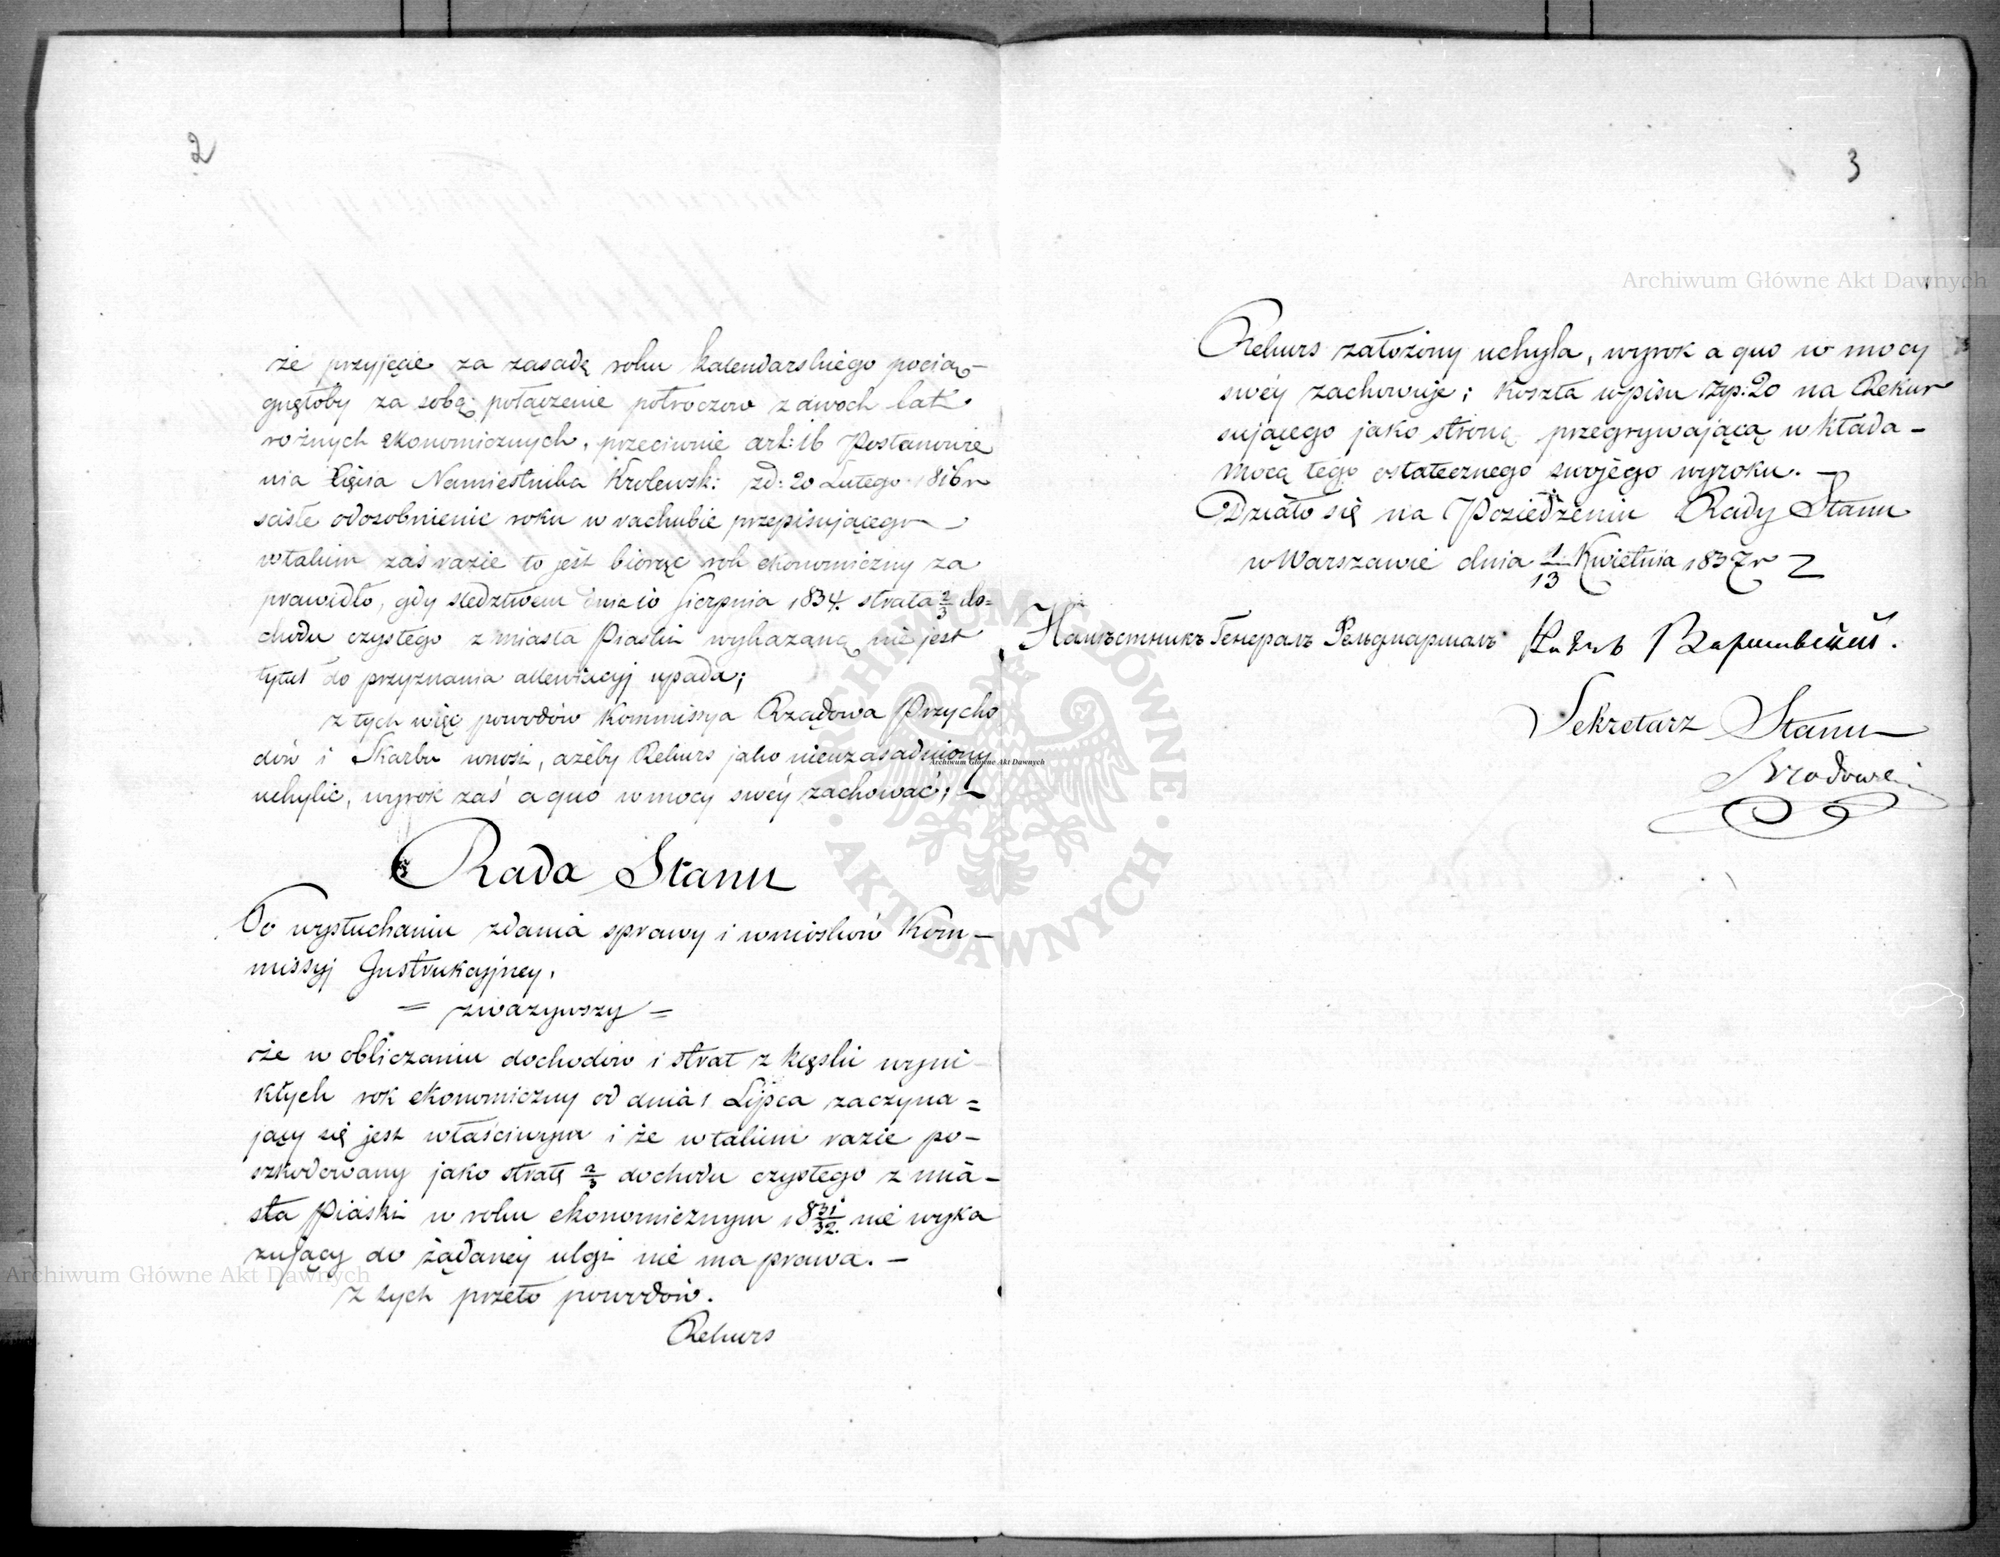 2
że przyjęcie za zasadę roku kalendarskiego pocią-
gnęłoby za sobą połączenie półroczow z dwoch lat
rożnych ekonomicznych, przeciwnie art: 16 Postanowie
nia Xięcia Namiestnika Krolewsk: zd: 20 Lutego 1816 r
scisłe odosobnienie roku w rachubie przepisującego
w takim zaś razie to jest biorąc rok ekonomiczny za
prawidło, gdy śledztwem dnia 10 Sierpnia 1834. strata 2/3 do=
chodu czystego z miasta Piaski wykazaną nie jest
tytuł do przyznania allewiacyj upada;
z tych więc powodów Kommissya Rządowa Przycho
dów i Skarbu wnosi, ażeby Rekurs jako nieuzasadniony
uchylić, wyrok zaś a quo w mocy swéy zachować; —
Rada Stanu
Po wysłuchaniu zdania sprawy i wniosków Kom—
missyj Instrukcyjney,
= zważywszy =
że w obliczaniu dochodów i strat z klęski wyni-
kłych rok ekonomiczny od dnia 1 Lipca zaczyna=
jący się jest właściwym i że w takim razie po-
szkodowany jako stratę 2/3 dochodu czystego z mia-
sta Piaski w roku ekonomicznym 18 31/32. nie wyka
zujący do żądaney ulgi nie ma prawa. —
z tych przeto powodów.
Rekurs
3
Rekurs założony uchyla, wyrok a quo w mocy
swéy zachowuje; koszta wpisu zp: 20 na Rekur
sującego jako stronę przegrywającą wkłada —
mocą tego ostatecznego swojego wyroku. —
Działo się na Posiedzeniu Rady Stanu
w Warszawie dnia 1/13 Kwietnia 1837 r
Намѣстникъ Генералъ Фельдмаршалъ Князь Варшавскій.
Sekretarz Stanu
Archiwum Główne Akt Dawnych
Archiwum Główne Akt Dawnych
Archiwum Główne Akt Dawnych
ARCHIWUM GŁÓWNE
AKT DAWNYCH